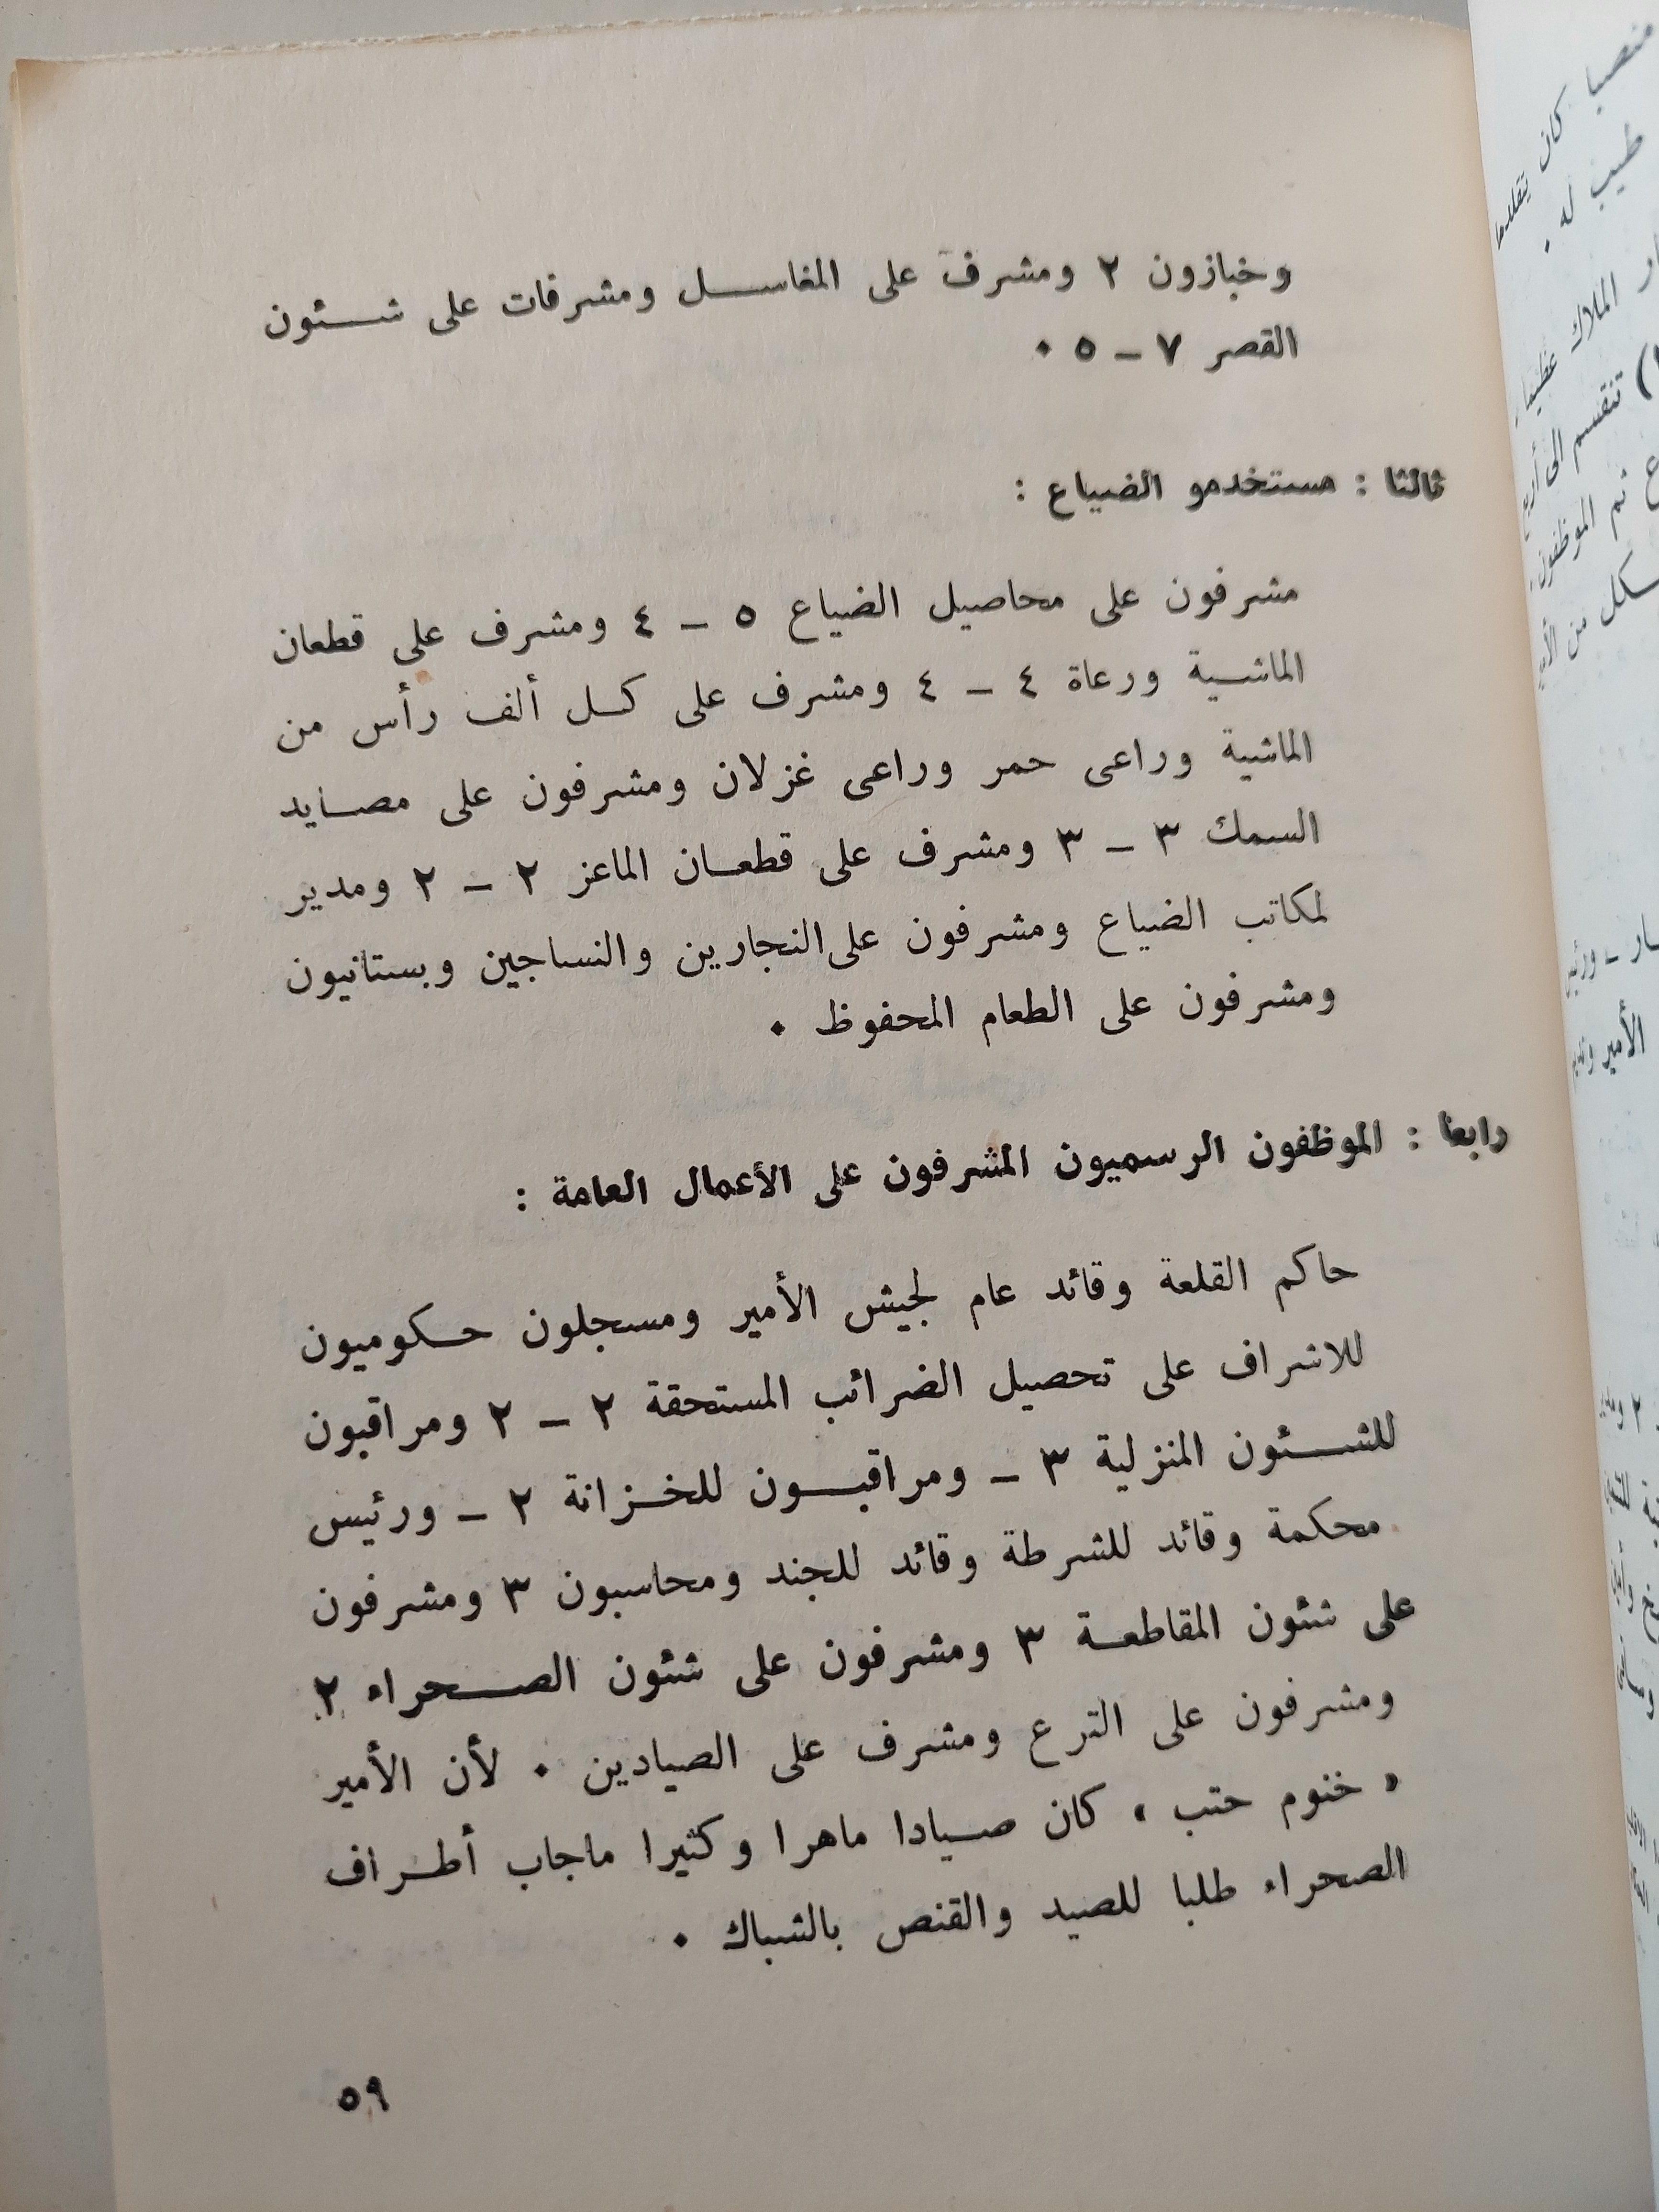 وخبازون ٢ ومشرف على المغاســل ومشرفات على شــئون
القصر ٧ ــ ٥ ٠
ثالثا : مستخدمو الضياع :
مشرفون على محاصيل الضياع ٥ ــ ٤ ومشرف على قطعان
الماشــية ورعاة ٤ ــ ٤ ومشرف على كــل ألف رأس من
الماشية وراعى حمر وراعى غزلان ومشرفون على مصــايد
السمك ٣ ــ ٣ ومشرف على قطعــان الماعز ٢ ــ ٢ ومدير
لمكاتب الضياع ومشرفون على النجارين والنساجين وبستانيون
ومشرفون على الطعام المحفوظ ٠
رابعا : الموظفون الرسميون المشرفون على الأعمال العامة :
حاكم القلعة وقائد عام لجيش الأمير ومسجلون حــكوميون
للاشراف على تحصيل الضرائب المستحقة ٢ ــ ٢ ومراقبون
للشــئون المنزلية ٣ ــ ومراقبــون للخــزانة ٢ ــ ورئيس
محكمة وقائد للشرطة وقائد للجند ومحاسبون ٣ ومشرفون
على شئون المقاطعــة ٣ ومشرفون على شئون الصــحراء ٢
ومشرفون على الترع ومشرف على الصيادين ٠ لأن الأمير
« خنوم حتب » كان صــيادا ماهرا وكثيرا ماجاب أطــراف
الصحراء طلبا للصيد والقنص بالشباك ٠
٥٩
منصبا كان يتقلدها
طبيب له ٠
الملاك عظيما
تنقسم الى أربع
ثم الموظفون
من
ورئيس
الأمير